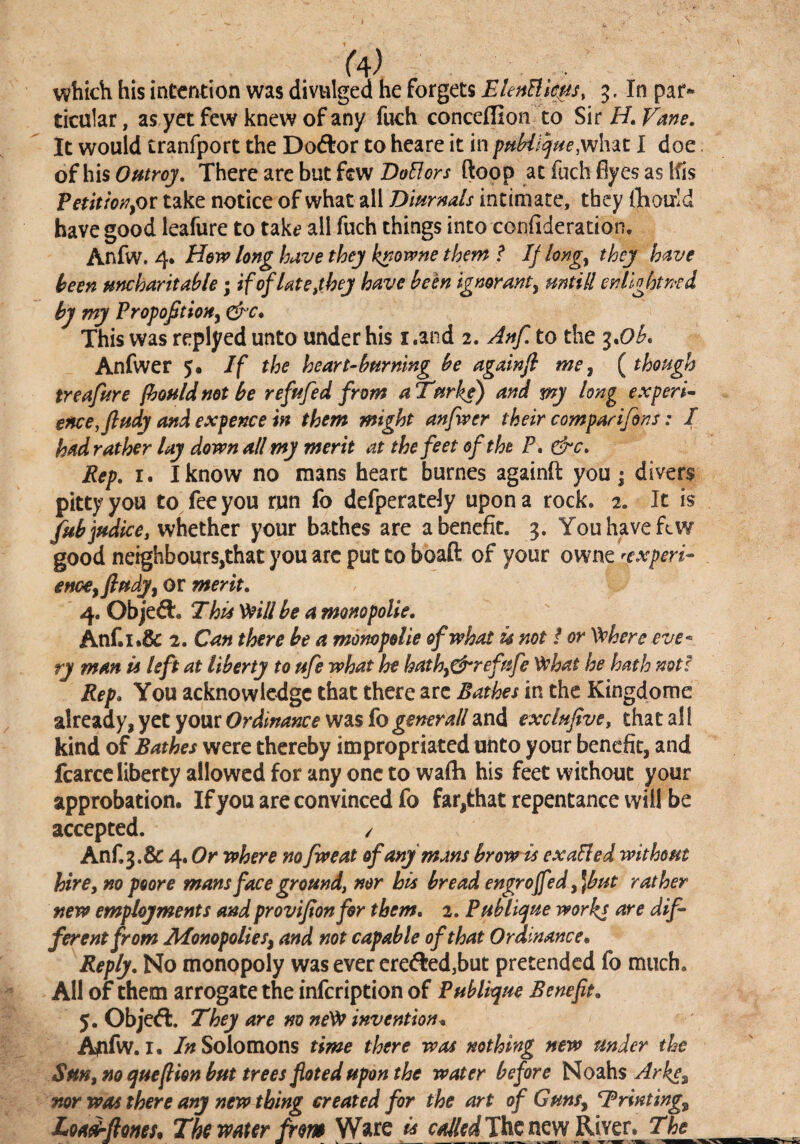 (4)
which his intention was divulged he forgets Elenƈticus, 3. In par-
ticular, as yet few knew of any ſuch conceſſion to Sir H. Vane.
It would tranſport the Doƈtor to heare it in publique,what I doe
of his Outroy. There are but few Doƈtors ſtoop at ſuch flyes as his
Petition,or take notice of what all Diurnals intimate, they ſhould
have good leaſure to take all ſuch things into conſideration.
Anſw. 4. How long have they knowne them ? If long, they have
been uncharitable ; if of late,they have been ignorant, untill enlightned
by my Propoſition, &c.
This was replyed unto under his 1.and 2. Anſ. to the 3.Ob.
Anſwer 5. If the heart-burning be againſt me, ( though
treaſure ſhould not be refuſed from a Turke) and my long experi-
ence, ſtudy and expence in them might anſwer their compariſons : I
had rather lay down all my merit at the feet of the P. &c.
Rep. 1. I know no mans heart burnes againſt you ; divers
pitty you to ſee you run ſo deſperately upon a rock. 2. It is
ſub judice, whether your bathes are a benefit. 3. You have few
good neighbours,that you are put to boaſt of your owne experi-
ence, ſtudy, or merit.
4. Objeƈt. This will be a monopolie.
Anſ.1.& 2. Can there be a monopolie of what is not ? or where eve-
ry man is left at liberty to uſe what he hath,&refuſe what he hath not?
Rep. You acknowledge that there are Bathes in the Kingdome
already, yet your Ordinance was ſo generall and excluſive, that all
kind of Bathes were thereby impropriated unto your benefit, and
ſcarce liberty allowed for any one to waſh his feet without your
approbation. If you are convinced ſo far,that repentance will be
accepted.
Anſ.3.& 4. Or where no ſweat of any mans brow is exaƈted without
hire, no poore mans face ground, nor his bread engroſſed, but rather
new employments and proviſion for them. 2. Publique works are dif-
ferent from Monopolies, and not capable of that Ordinance.
Reply. No monopoly was ever ereƈted,but pretended ſo much.
All of them arrogate the inſcription of Publique Benefit.
5. Objeƈt. They are no new invention.
Anſw. 1. In Solomons time there was nothing new under the
Sun, no queſtion but trees floted upon the water before Noahs Arke,
nor was there any new thing created for the art of Guns, Printing,
Load-ſtones. The water from Ware is called The new River. The